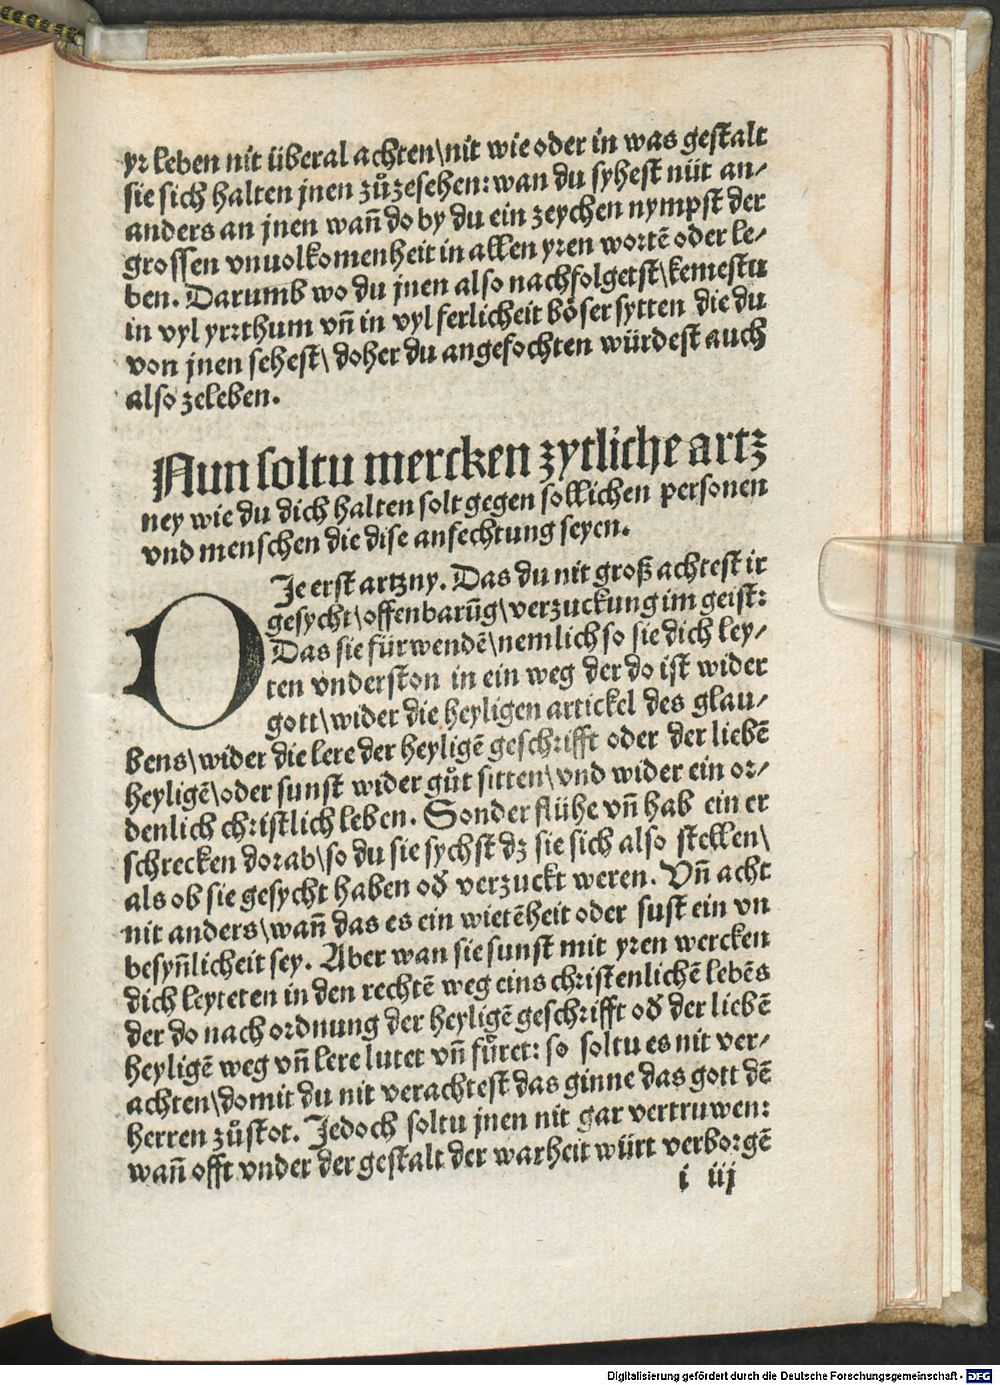 yr leben nit überal achten\nit wie oder in was gestalt
sie sich halten jnen zůzesehen: wan du syhest nüt an-
anders an jnen wañ do by du ein zeychen nympst der
grossen vnuolkomenheit in allen yren wortē oder le-
ben. Darumb wo du jnen also nachfolgetst\kemestu
in vyl yrrthum vñ in vyl ferlicheit böser sytten die du
von jnen sehest\ doher du angefochten würdest auch
also zeleben.
Nun soltu mercken zytliche artz
ney wie du dich halten solt gegen sollichen personen
vnd menschen die dise anfechtung seyen.
DJe erst artzny. Das du nit groß achtest ir
gesycht\offenbarūg\verzuckung im geist:
Das sie für wendē\nemlich so sie dich ley-
ten vnderston in ein weg der do ist wider
gott\wider die heyligen artickel des glau-
bens\wider die lere der heyligē geschrifft oder der liebē
heyligē\oder sunst wider gůt sitten\vnd wider ein or-
denlich christlich leben. Sonder flühe vñ hab ein er
schrecken dorab\so du sie sychst dz sie sich also stellen\
als ob sie gesycht haben oď verzuckt weren. Vñ acht
nit anders\wañ das es ein wietēheit oder sust ein vn
besyñlicheit sey. Aber wan sie sunst mit yren wercken
dich leyteten in den rechtē weg eins christenlichē lebēs
der do nach ordnung der heyligē geschrifft oď der liebē
heyligē weg vñ lere lutet vñ fůret: so soltu es nit ver-
achten\domit du nit verachtest das ginne das gott dē
herren zůstot. Jedoch soltu jnen nit gar vertruwen:
wañ offt vnder der gestalt der warheit würt verborgē
i iij
Digitalisierung gefördert durch die Deutsche Forschungsgemeinschaft - DFG